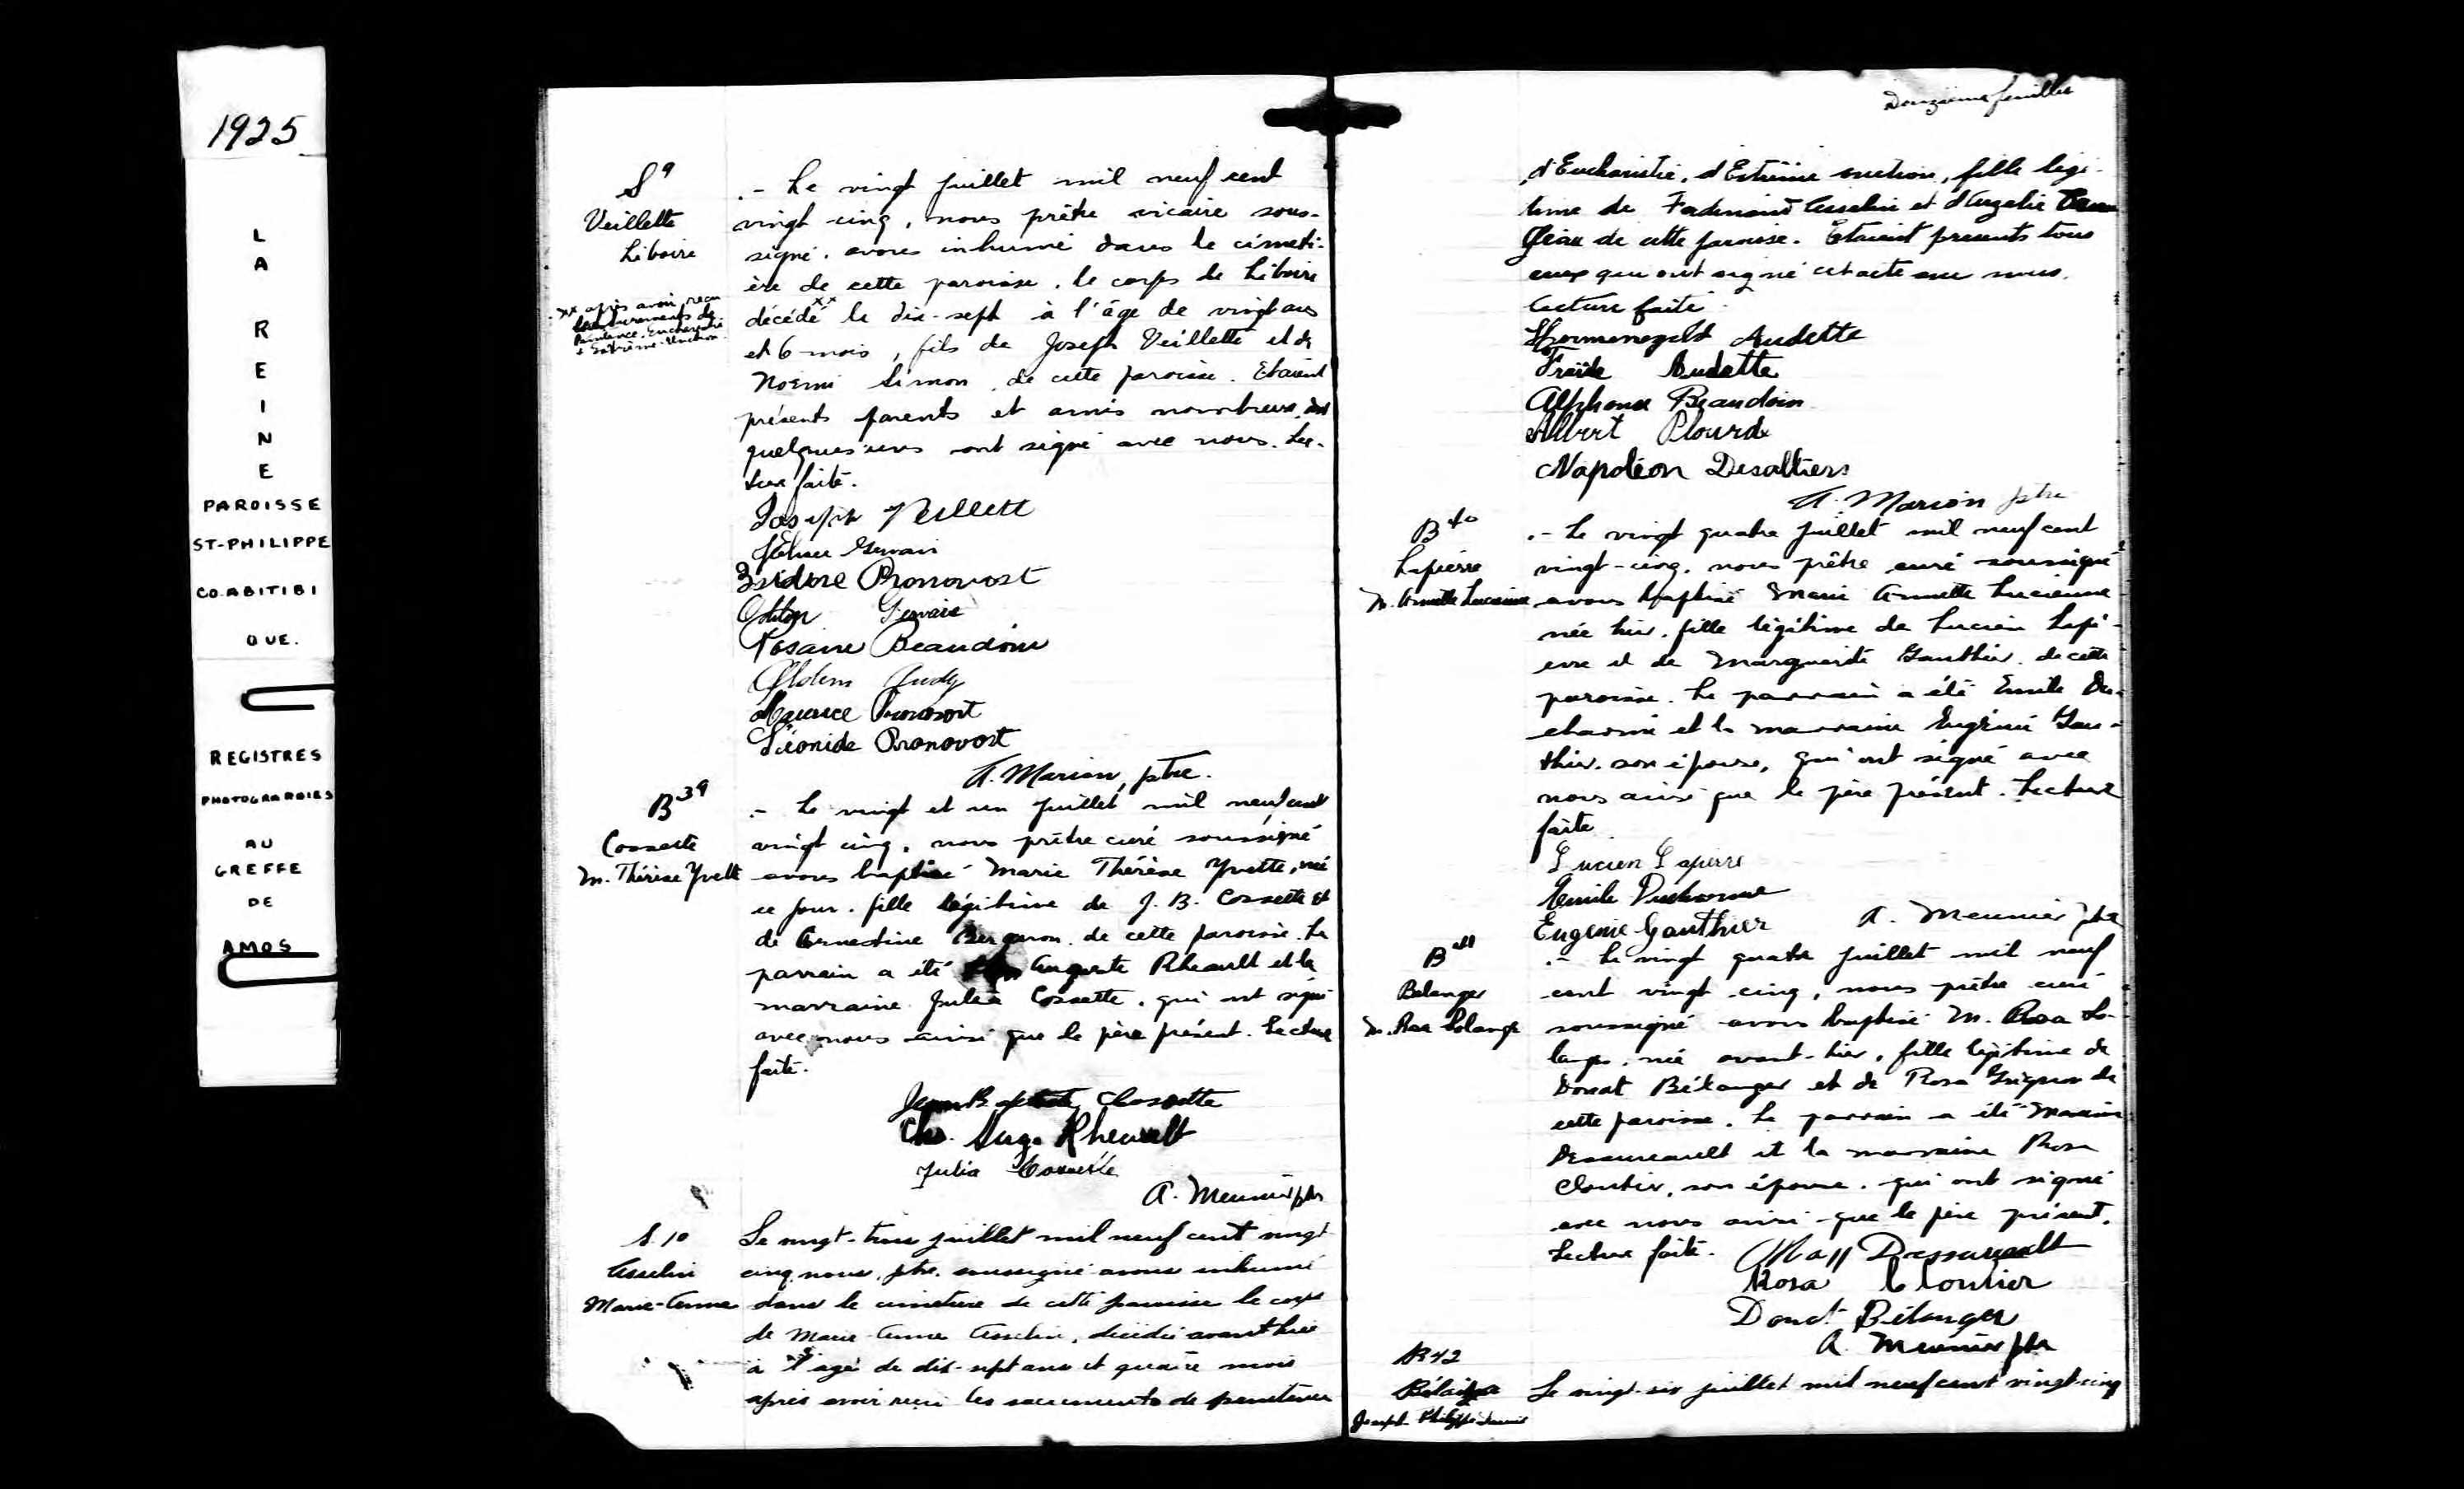 1925
LA REINE
PAROISSE
ST-PHILIPPE
CO. ABITIBI
QUE.
REGISTRES
PHOTOGRAPHIES
AU
GREFFE
DE
AMOS
S 9
Veillette
Liboire
xx après avoir reçu
les sacrements de
Pénitence, Eucharistie
et Extrême-Onction
.- Le vingt juillet mil neuf cent
vingt cinq, nous prêtre vicaire sous-
signé, avons inhumé dans le cimeti-
ère de cette paroisse, le corps de Liboire
décédé xx le dix-sept à l'âge de vingt ans
et 6 mois, fils de Joseph Veillette et de
Noémi Simon, de cette paroisse. Etaient
présents parents et amis nombreux, dont
quelques'uns ont signé avec nous. Lec-
ture faite.
Joseph Veillett
Gervais
Isidore Pronovost
Gervais
Rosaire Beaudoin
Audy
Maurice Pronovost
Léonide Pronovost
A. Marion, ptre.
B 39
Cossette
M. Thérèse Yvette
.- Le vingt et un juillet mil neuf cent
vingt cinq, nous prêtre curé soussigné
avons baptisé Marie Thérèse Yvette, née
ce jour, fille légitime de J. B. Cossette et
de Ernestine Bergeron, de cette paroisse. Le
parrain a été Auguste Rheault et la
marraine Julia Cossette, qui ont signé
avec nous ainsi que le père présent. Lecture
faite.
Jean Baptiste Cossette
Chs. Aug. Rheault
Julia Cossette
A. Meunier ptre
S. 10
Asselin
Marie-Anne
Le vingt-trois juillet mil neuf cent vingt
cinq, nous, ptre. soussigné avons inhumé
dans le cimetière de cette paroisse le corps
de Marie-Anne Asselin, décédée avant hier
à l'age de dix-sept ans et quatre mois
après avoir reçu les sacrements de pénitence
Douzième feuillet
d'Eucharistie, d'Extrême onction, fille légi-
time de Ferdinand Asselin et d'Angélie
de cette paroisse. Etaient présents tous
ceux qui ont signé cet acte avec nous.
Lecture faite
Hormenegeld Audette
Audette
Alphonse Beaudoin
Albert Plourde
Napoléon Desaltiers
A. Marion ptre
B 40
Lapierre
M. Annette Lucienne
.- Le vingt quatre juillet mil neuf cent
vingt-cinq, nous prêtre curé soussigné
avons baptisé Marie Annette Lucienne
née hier, fille légitime de Lucien Lapi-
erre et de Marguerite Gauthier, de cette
paroisse. Le parrain a été Emile Du-
charme et la marraine Eugénie Gau-
thier, son épouse, qui ont signé avec
nous ainsi que le père présent. Lecture
faite
Lucien Lapierre
Emile Ducharme
Eugénie Gauthier A. Meunier ptre
B 41
Bélanger
M. Rosa Solange
.- Le vingt quatre juillet mil neuf
cent vingt cinq, nous prêtre curé
soussigné avons baptisé M. Rosa So-
lange, née avant-hier, fille légitime de
Donat Bélanger et de Rosa Grignon de
cette paroisse. Le parrain a été Maxime
Dessureault et la marraine Rosa
Cloutier, son épouse, qui ont signé
avec nous ainsi que le père présent.
Lecture faite. Max Dessureault
Rosa Cloutier
Donat Bélanger
A. Meunier ptre
B 42
Joseph Philippe
Le vingt-six juillet mil neuf cent vingt-cinq